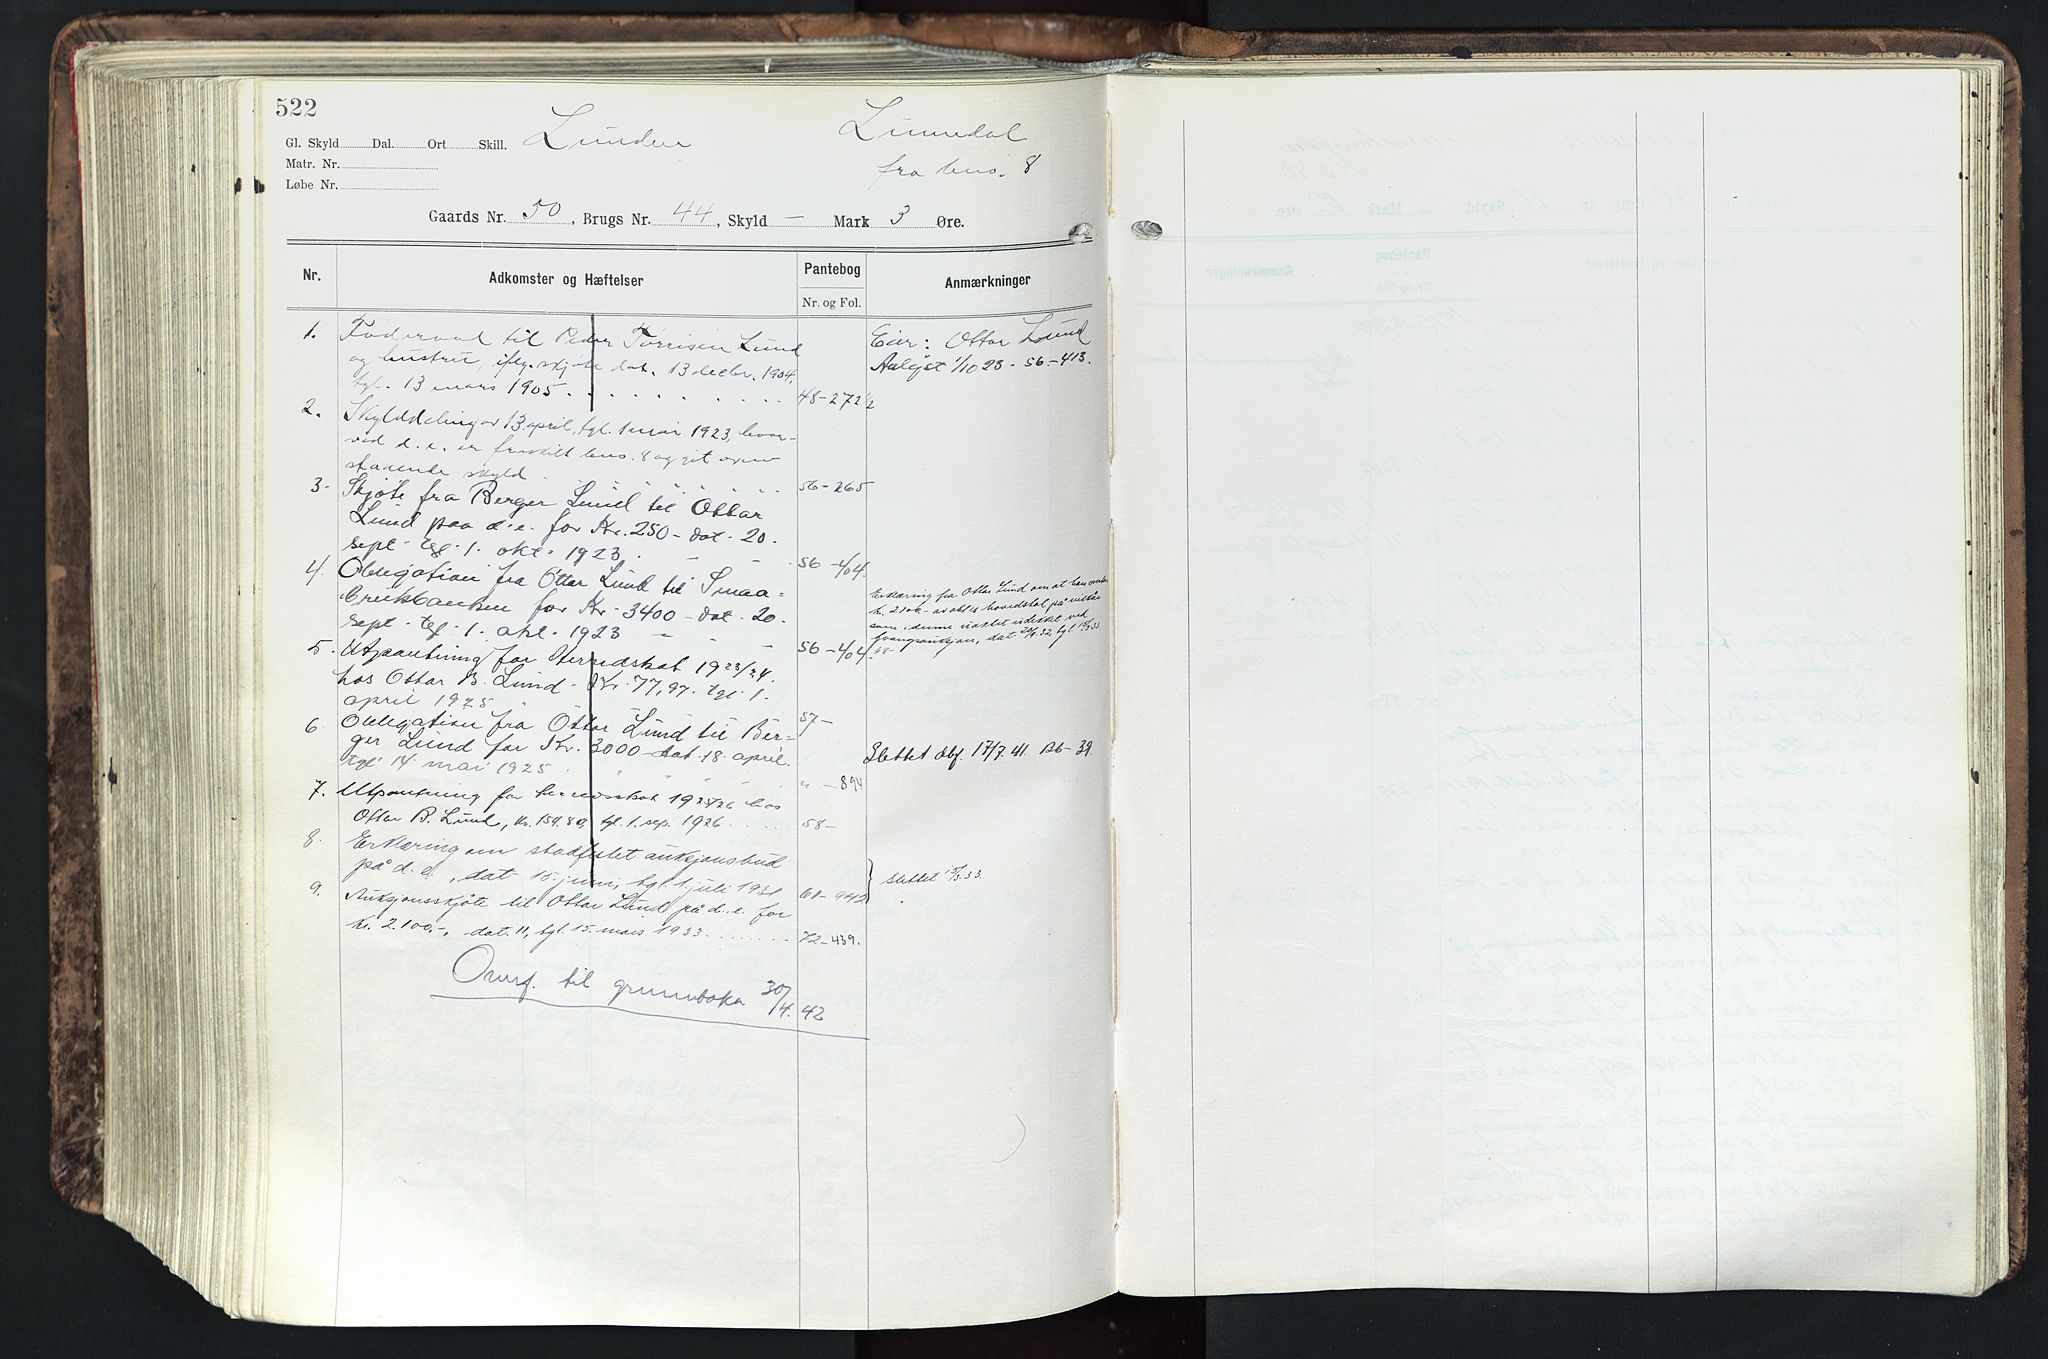 522
Gl. Skyld Dal. Ort Skill. Lunden Lunndal
Matr. Nr. fra bno. 8
Løbe Nr.
Gaards Nr. 50, Brugs Nr. 44, Skyld — Mark 3 Øre.
Nr. Adkomster og Hæftelser Pantebog Anmærkninger
Nr. og Fol.
1. Føderaad til Peder Tørrisen Lund Eier: Ottar Lund
og hustru, iflg. skjøte dat. 13 decbr. 1904, 1/10 23 - 56-413.
tgl. 13 mars 1905. 48-272 1/2
2. Skylddeling av 13 april, tgl. 1 mai 1923, hvor-
ved d. e. er fraskilt bno. 8 og git oven-
staaende skyld 56-265
3. Skjøte fra Berger Lund til Ottar
Lund paa d. e. for Kr. 250 - dat. 20.
sept. tgl. 1. okt. 1923. 56-404.
4. Obligation fra Ottar Lund til Smaa-
brukbanken for Kr. 3400 - dat. 20.
sept. tgl. 1. okt. 1923 56-404.
Erklæring fra Ottar Lund om at han overtar
kr. 2100.- av obl.s hovedstol på vilkår
som i denne udekket ved
tvangsauksjon, dat. tgl. 15/3 33
5. Utpantning for herredskat 1923/24
hos Ottar B. Lund - Kr. 77,97. tgl. 1.
april 1925 57-
6. Obligation fra Ottar Lund til Ber-
ger Lund for Kr. 3000 - dat. 18. april
tgl. 14 mai 1925 " -894 Slettet dbf. 17/7. 41. B6-39.
7. Utpantning for herredsskat 1925/26 hos
Ottar B. Lund, kr. 154.80, tgl. 1. sep. 1926 58-
8. Erklæring om stadfestet auksjonsbud
på d. e., dat. 15. juni, tgl. 1 juli 1931 68-942 Slettet 15/3.33.
9. Auksjonsskjøte til Ottar Lund på d. e. for
kr. 2.100.-, dat. 11, tgl. 15. mars 1933. 72-439.
Overf. til grunnboka 30/4. 42